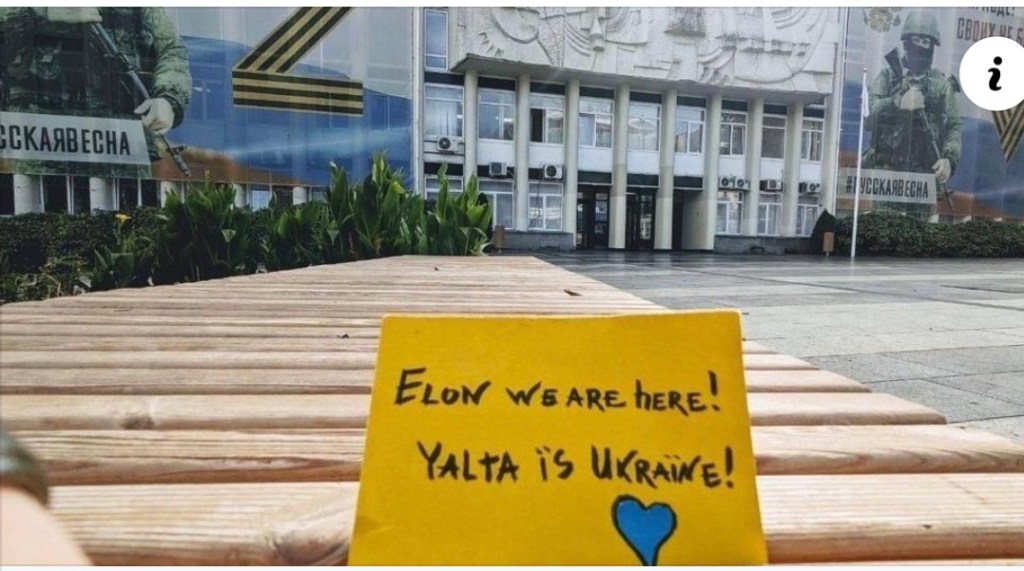 Z
ССКАЯВЕСНА
СВОИХ НЕ Б
#РУССКАЯВЕСНА
i
ELON WE ARE hERE!
YALTA ïS UKRAïNE!